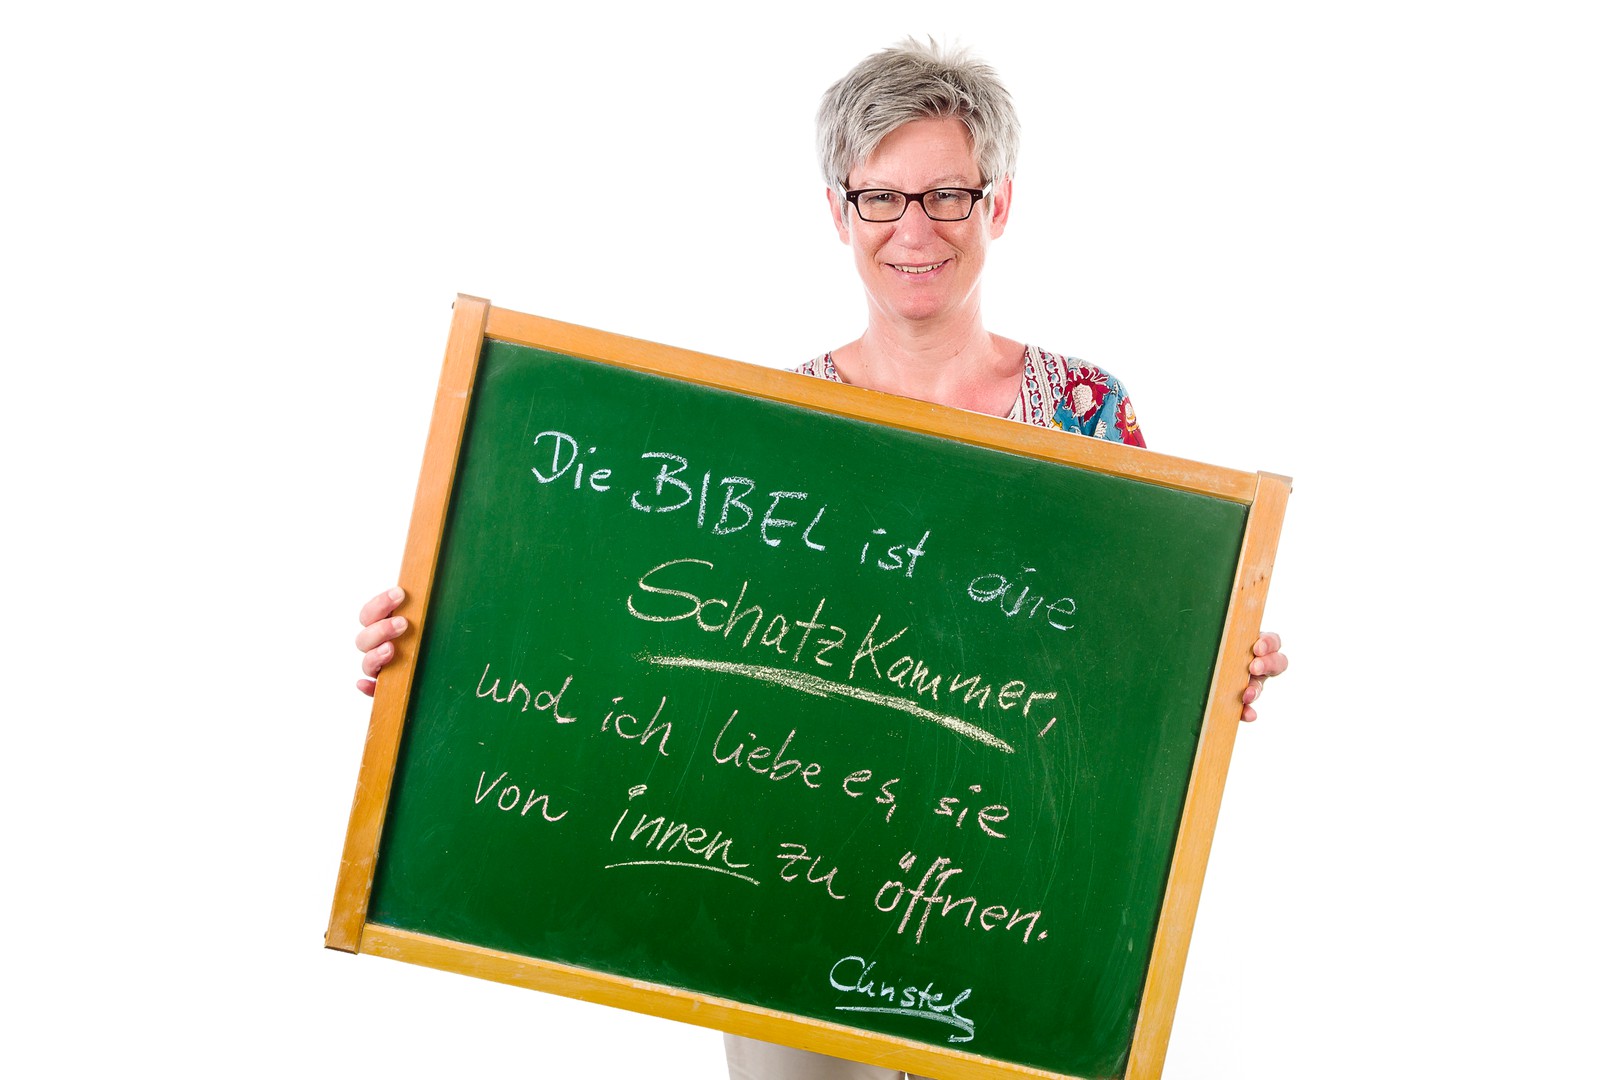 Die BIBEL ist eine
Schatzkammer,
und ich liebe es, sie
von innen zu öffnen.
Christel